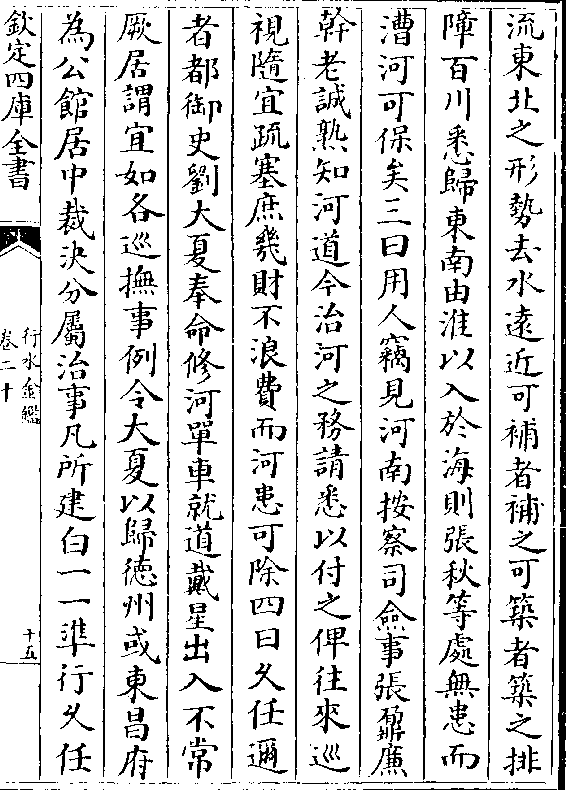 流東北之形勢去水遠近可補者補之可築者築之排
障百川悉歸東南由淮以入於海則張秋等處無患而
漕河可保矣三曰用人竊見河南按察司僉事張鼐廉
幹老誠熟知河道今治河之務請悉以付之俾往來巡
視隨宜疏塞庶幾財不浪費而河患可除四曰久任邇
者都御史劉大夏奉命修河單車就道戴星出入不常
厥居謂宜如各巡撫事例令大夏以歸德州或東昌府
為公館居中裁決分屬治事凡所建白一一準行久任
欽定四庫全書
行水金鑑
卷二十
十五